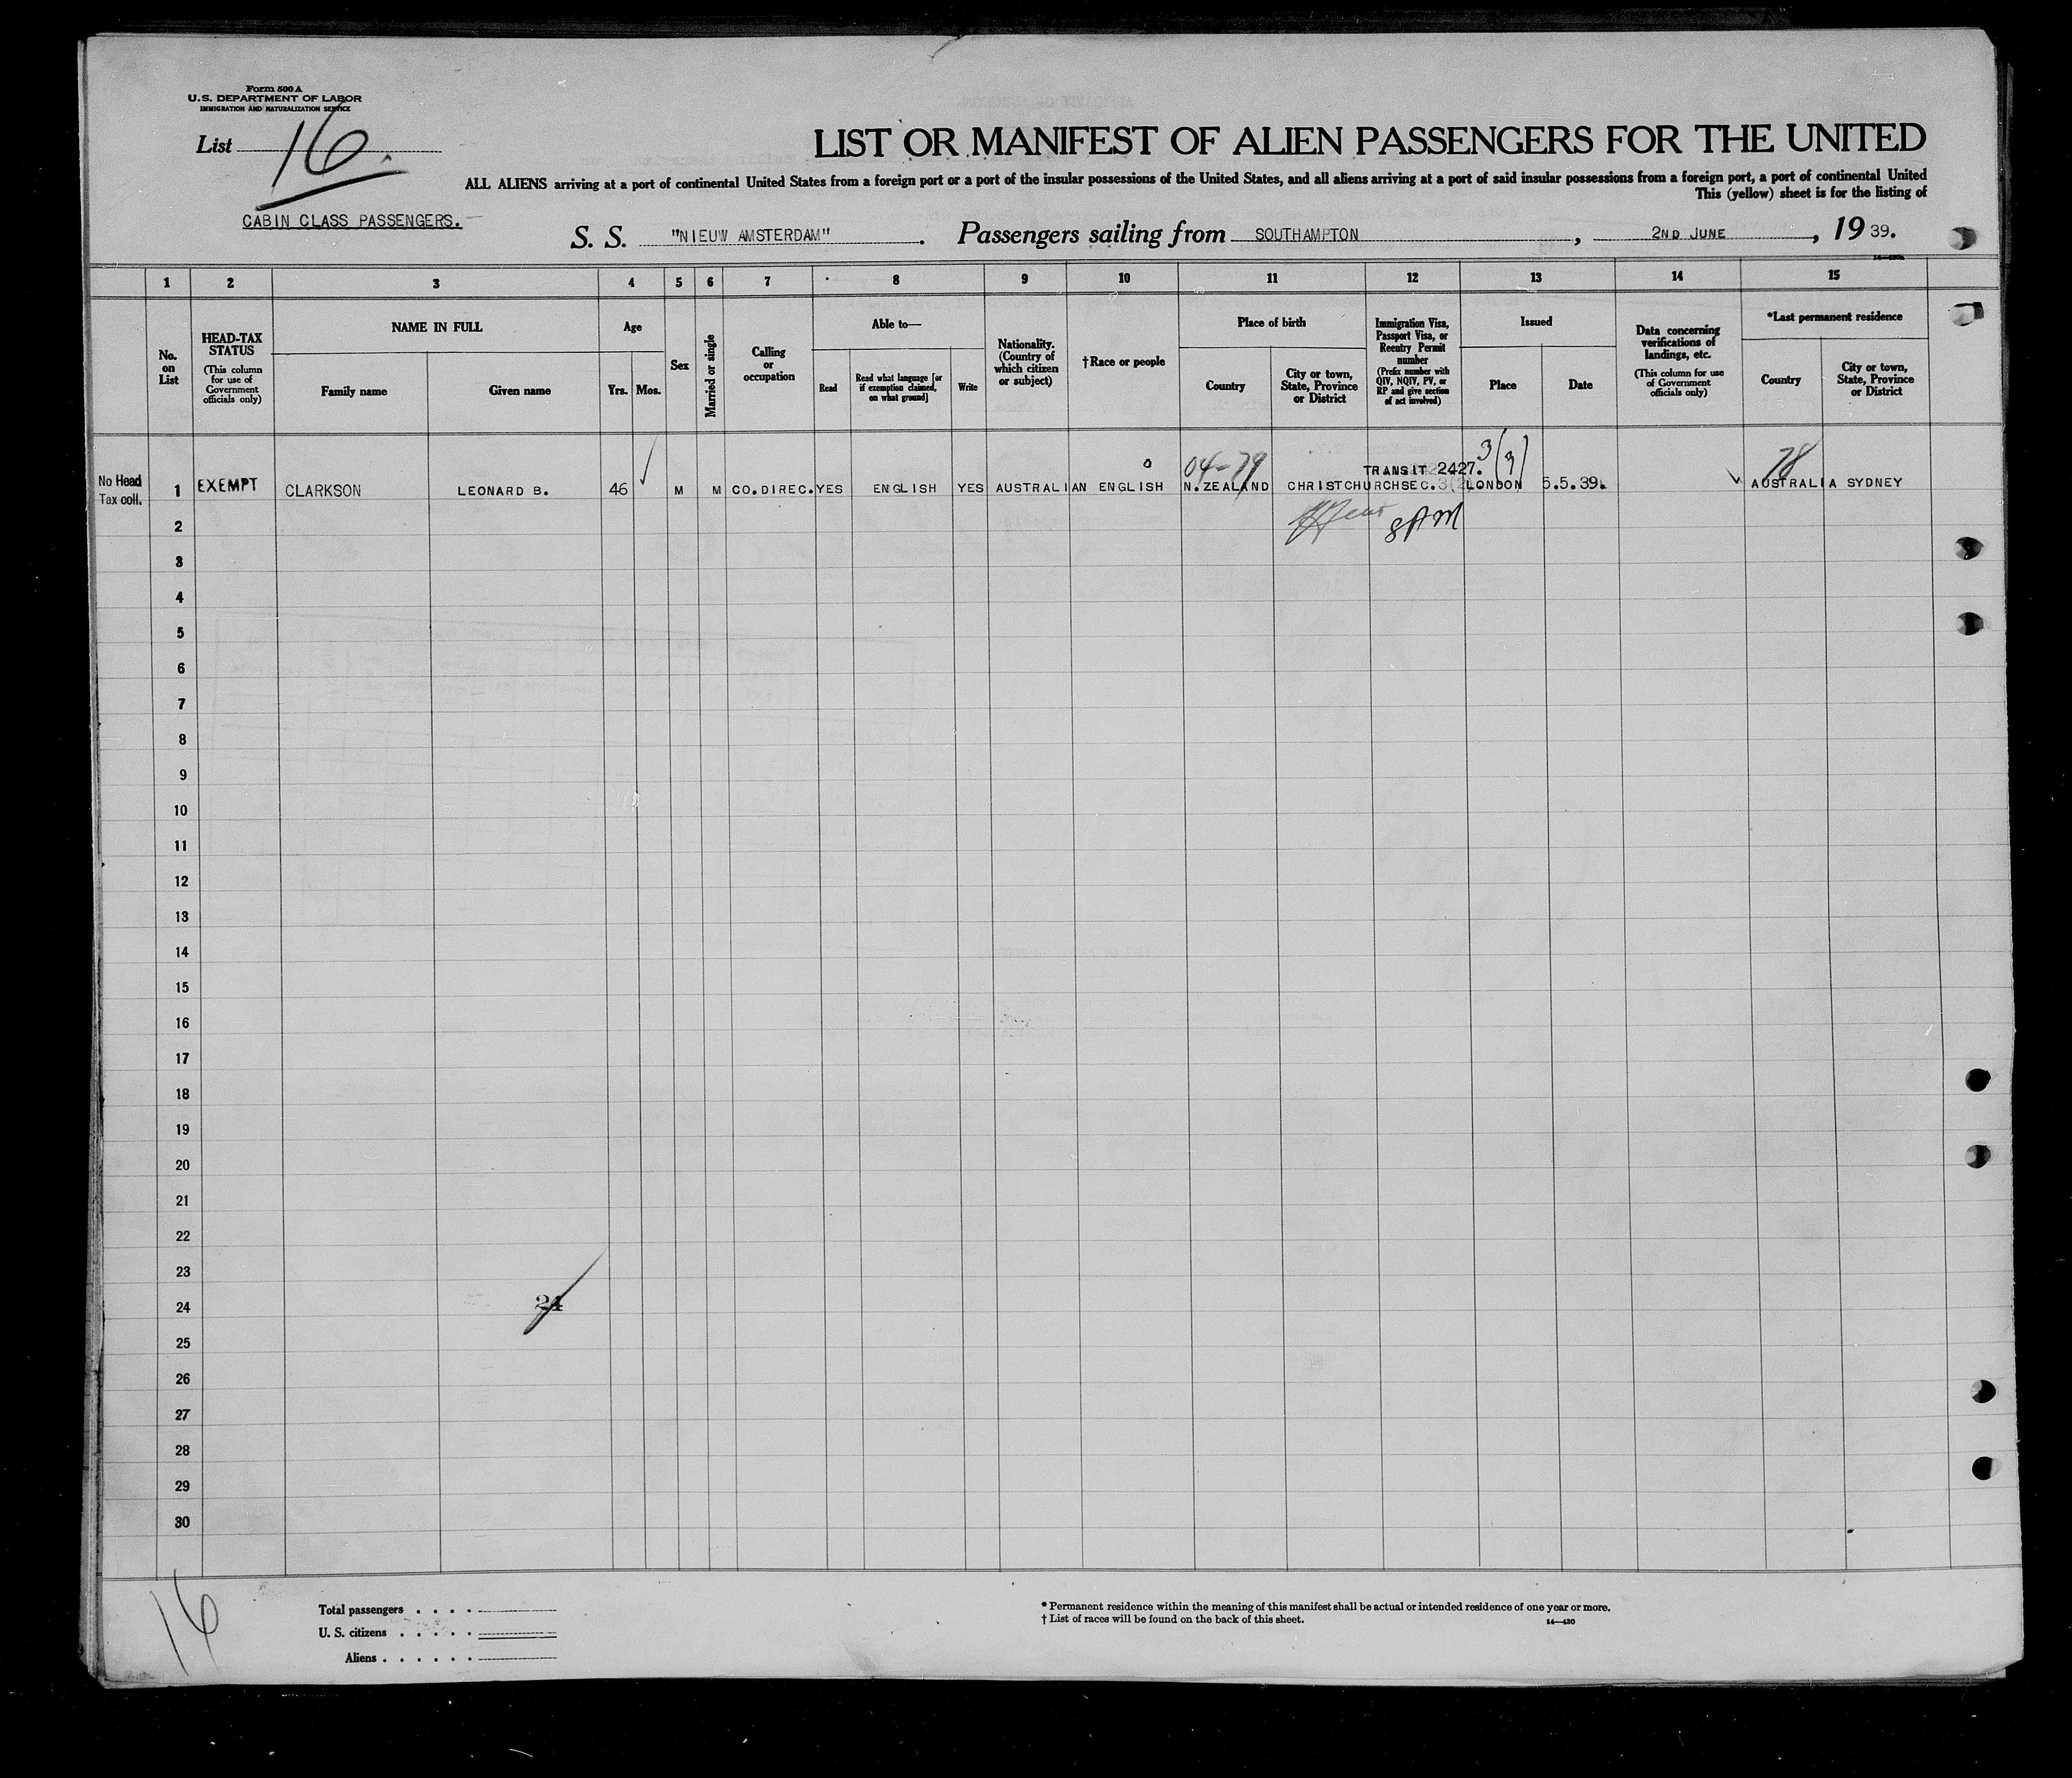 Form 500 A
U.S. DEPARTMENT OF LABOR
IMMIGRATION AND NATURALIZATION SERVICE
List 16.
LIST OR MANIFEST OF ALIEN PASSENGERS FOR THE UNITED
ALL ALIENS arriving at a port of continental United States from a foreign port or a port of the insular possessions of the United States, and all aliens arriving at a port of said insular possessions from a foreign port, a port of continental United
This (yellow) sheet is for the listing of
CABIN CLASS PASSENGERS.
S. S. "NIEUW AMSTERDAM". Passengers sailing from SOUTHAMPTON, 2ND JUNE, 19 39.
1 2 3 4 5 6 7 8 9 10 11 12 13 14 15
No. on List
HEAD-TAX STATUS
(This column for use of Government officials only)
NAME IN FULL
Family name
Given name
Age
Yrs. Mos.
Sex
Married or single
Calling or occupation
Able to—
Read
Read what language [or if exemption claimed, on what ground]
Write
Nationality. (Country of which citizen or subject)
†Race or people
Place of birth
Country
City or town, State, Province or District
Immigration Visa, Passport Visa, or Reentry Permit number
(Prefix number with QIV, NQIV, PV, or RP and give section of act involved)
Issued
Place
Date
Data concerning verifications of landings, etc.
(This column for use of Government officials only)
*Last permanent residence
Country
City or town, State, Province or District
04-79 TRANSIT 2427. 3(3) 78
No Head Tax coll. 1 EXEMPT CLARKSON LEONARD B. 46 M M CO.DIREC. YES ENGLISH YES AUSTRALIAN ENGLISH N.ZEALAND CHRISTCHURCH SEC. LONDON 5.5.39. AUSTRALIA SYDNEY
2
3
4
5
6
7
8
9
10
11
12
13
14
15
16
17
18
19
20
21
22
23
24 24
25
26
27
28
29
30
16
Total passengers . . . .
U. S. citizens . . . . .
Aliens . . . . . .
* Permanent residence within the meaning of this manifest shall be actual or intended residence of one year or more.
† List of races will be found on the back of this sheet.
14—430